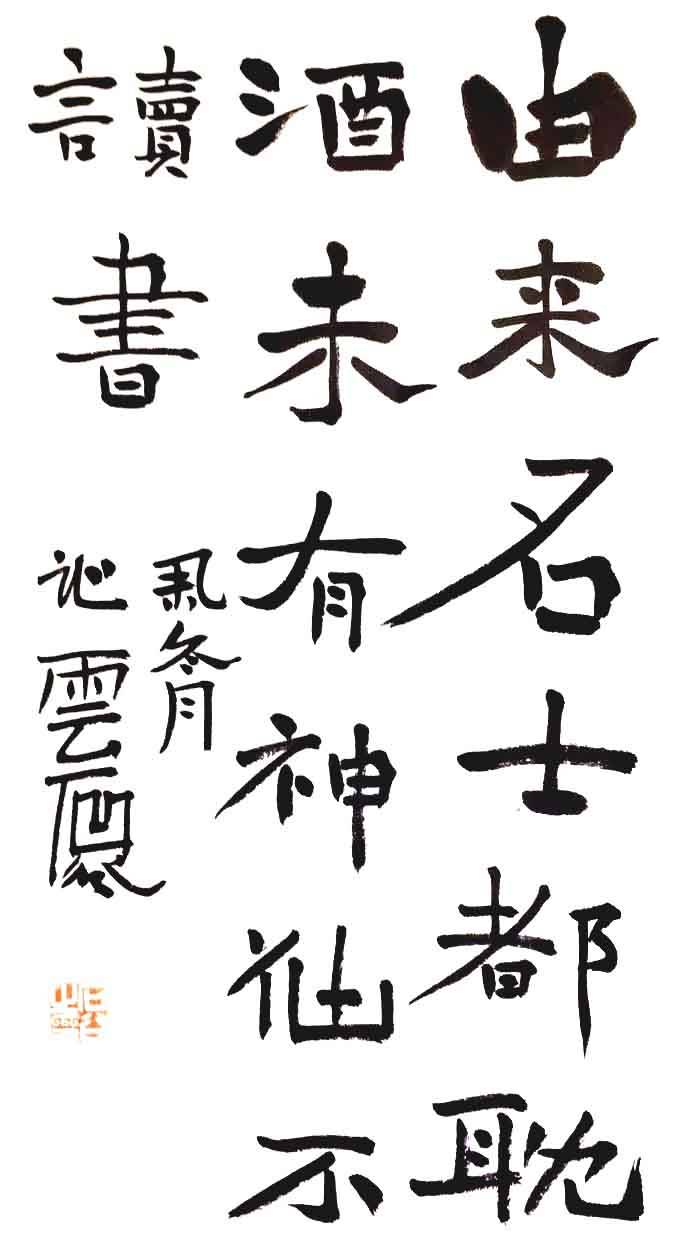 由来名士都耽
酒未有神仙不
讀書
冬月
雲